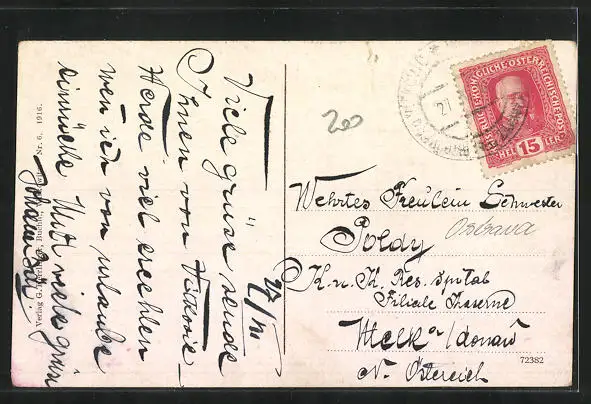 Viele grüse sende
Ihnen von Vitkovic
Werde viel erzehlen
wen ich von urlaube
einrücke Und viele grüse
Johann
27/XI
Verlag G. Nr. 6. 1916.
200
KAISERLICHE KÖNIGLICHE ÖSTERREICHISCHE POST
HELLER 15
Wehrtes Freulein Schwester
Poldy
Ostrava
K. u. K. Res. spital
Filiale Kaserne
Melk a/donau
N. Östereich
72382